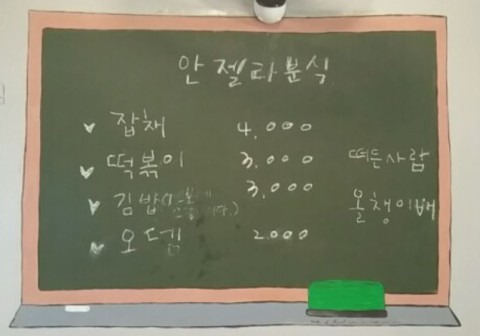 안젤라분식
잡채 4,000
떡볶이 3,000
김밥 3,000
오뎅 2000
떠든사람
올챙이배